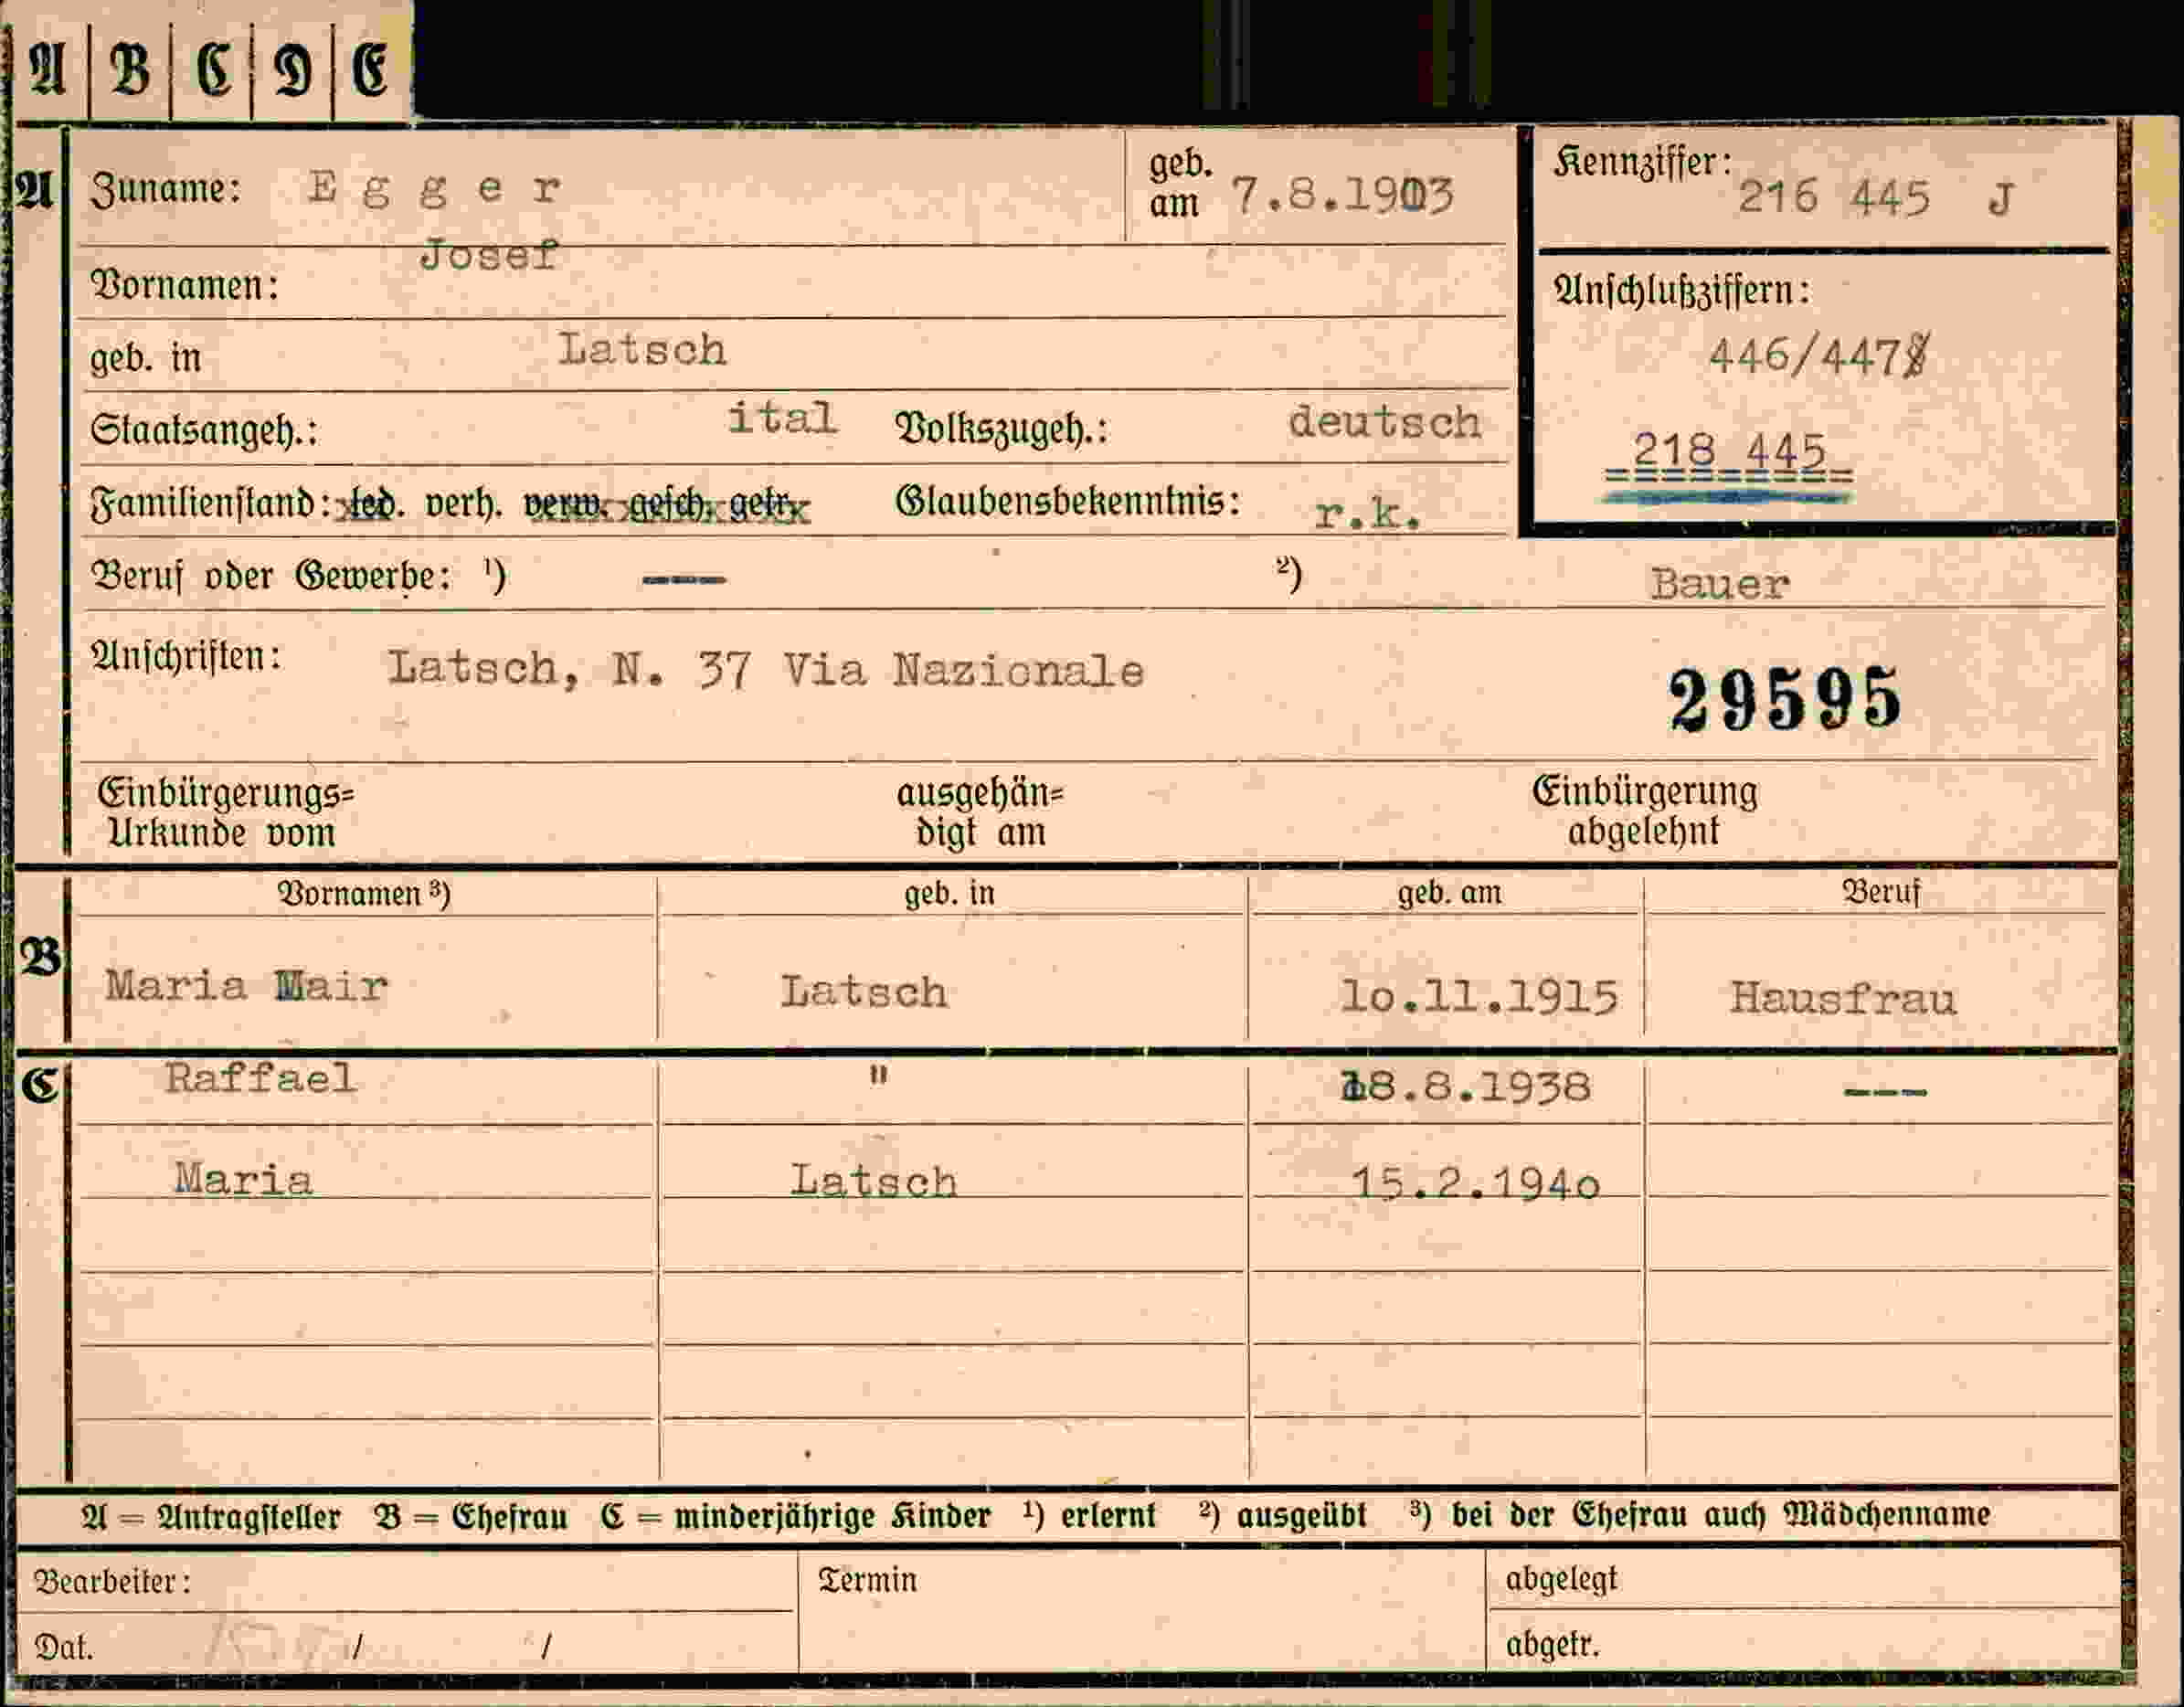 A B C D E
A Zuname: E g g e r geb. am 7.8.1903 Kennziffer: 216 445 J
Vornamen: Josef
Anschlußziffern:
geb. in Latsch 446/447
Staatsangeh.: ital Volkszugeh.: deutsch 218 445
Familienstand: led. verh. verw. gesch. getr. Glaubensbekenntnis: r.k.
Beruf oder Gewerbe: ¹) --- ²) Bauer
Anschriften: Latsch, N. 37 Via Nazionale 29595
Einbürgerungs= ausgehän= Einbürgerung
Urkunde vom digt am abgelehnt
Vornamen ³) geb. in geb. am Beruf
B Maria Mair Latsch 1o.11.1915 Hausfrau
C Raffael " 18.8.1938 ---
Maria Latsch 15.2.194o
A = Antragsteller B = Ehefrau C = minderjährige Kinder ¹) erlernt ²) ausgeübt ³) bei der Ehefrau auch Mädchenname
Bearbeiter: Termin abgelegt
Dat. / / abgetr.